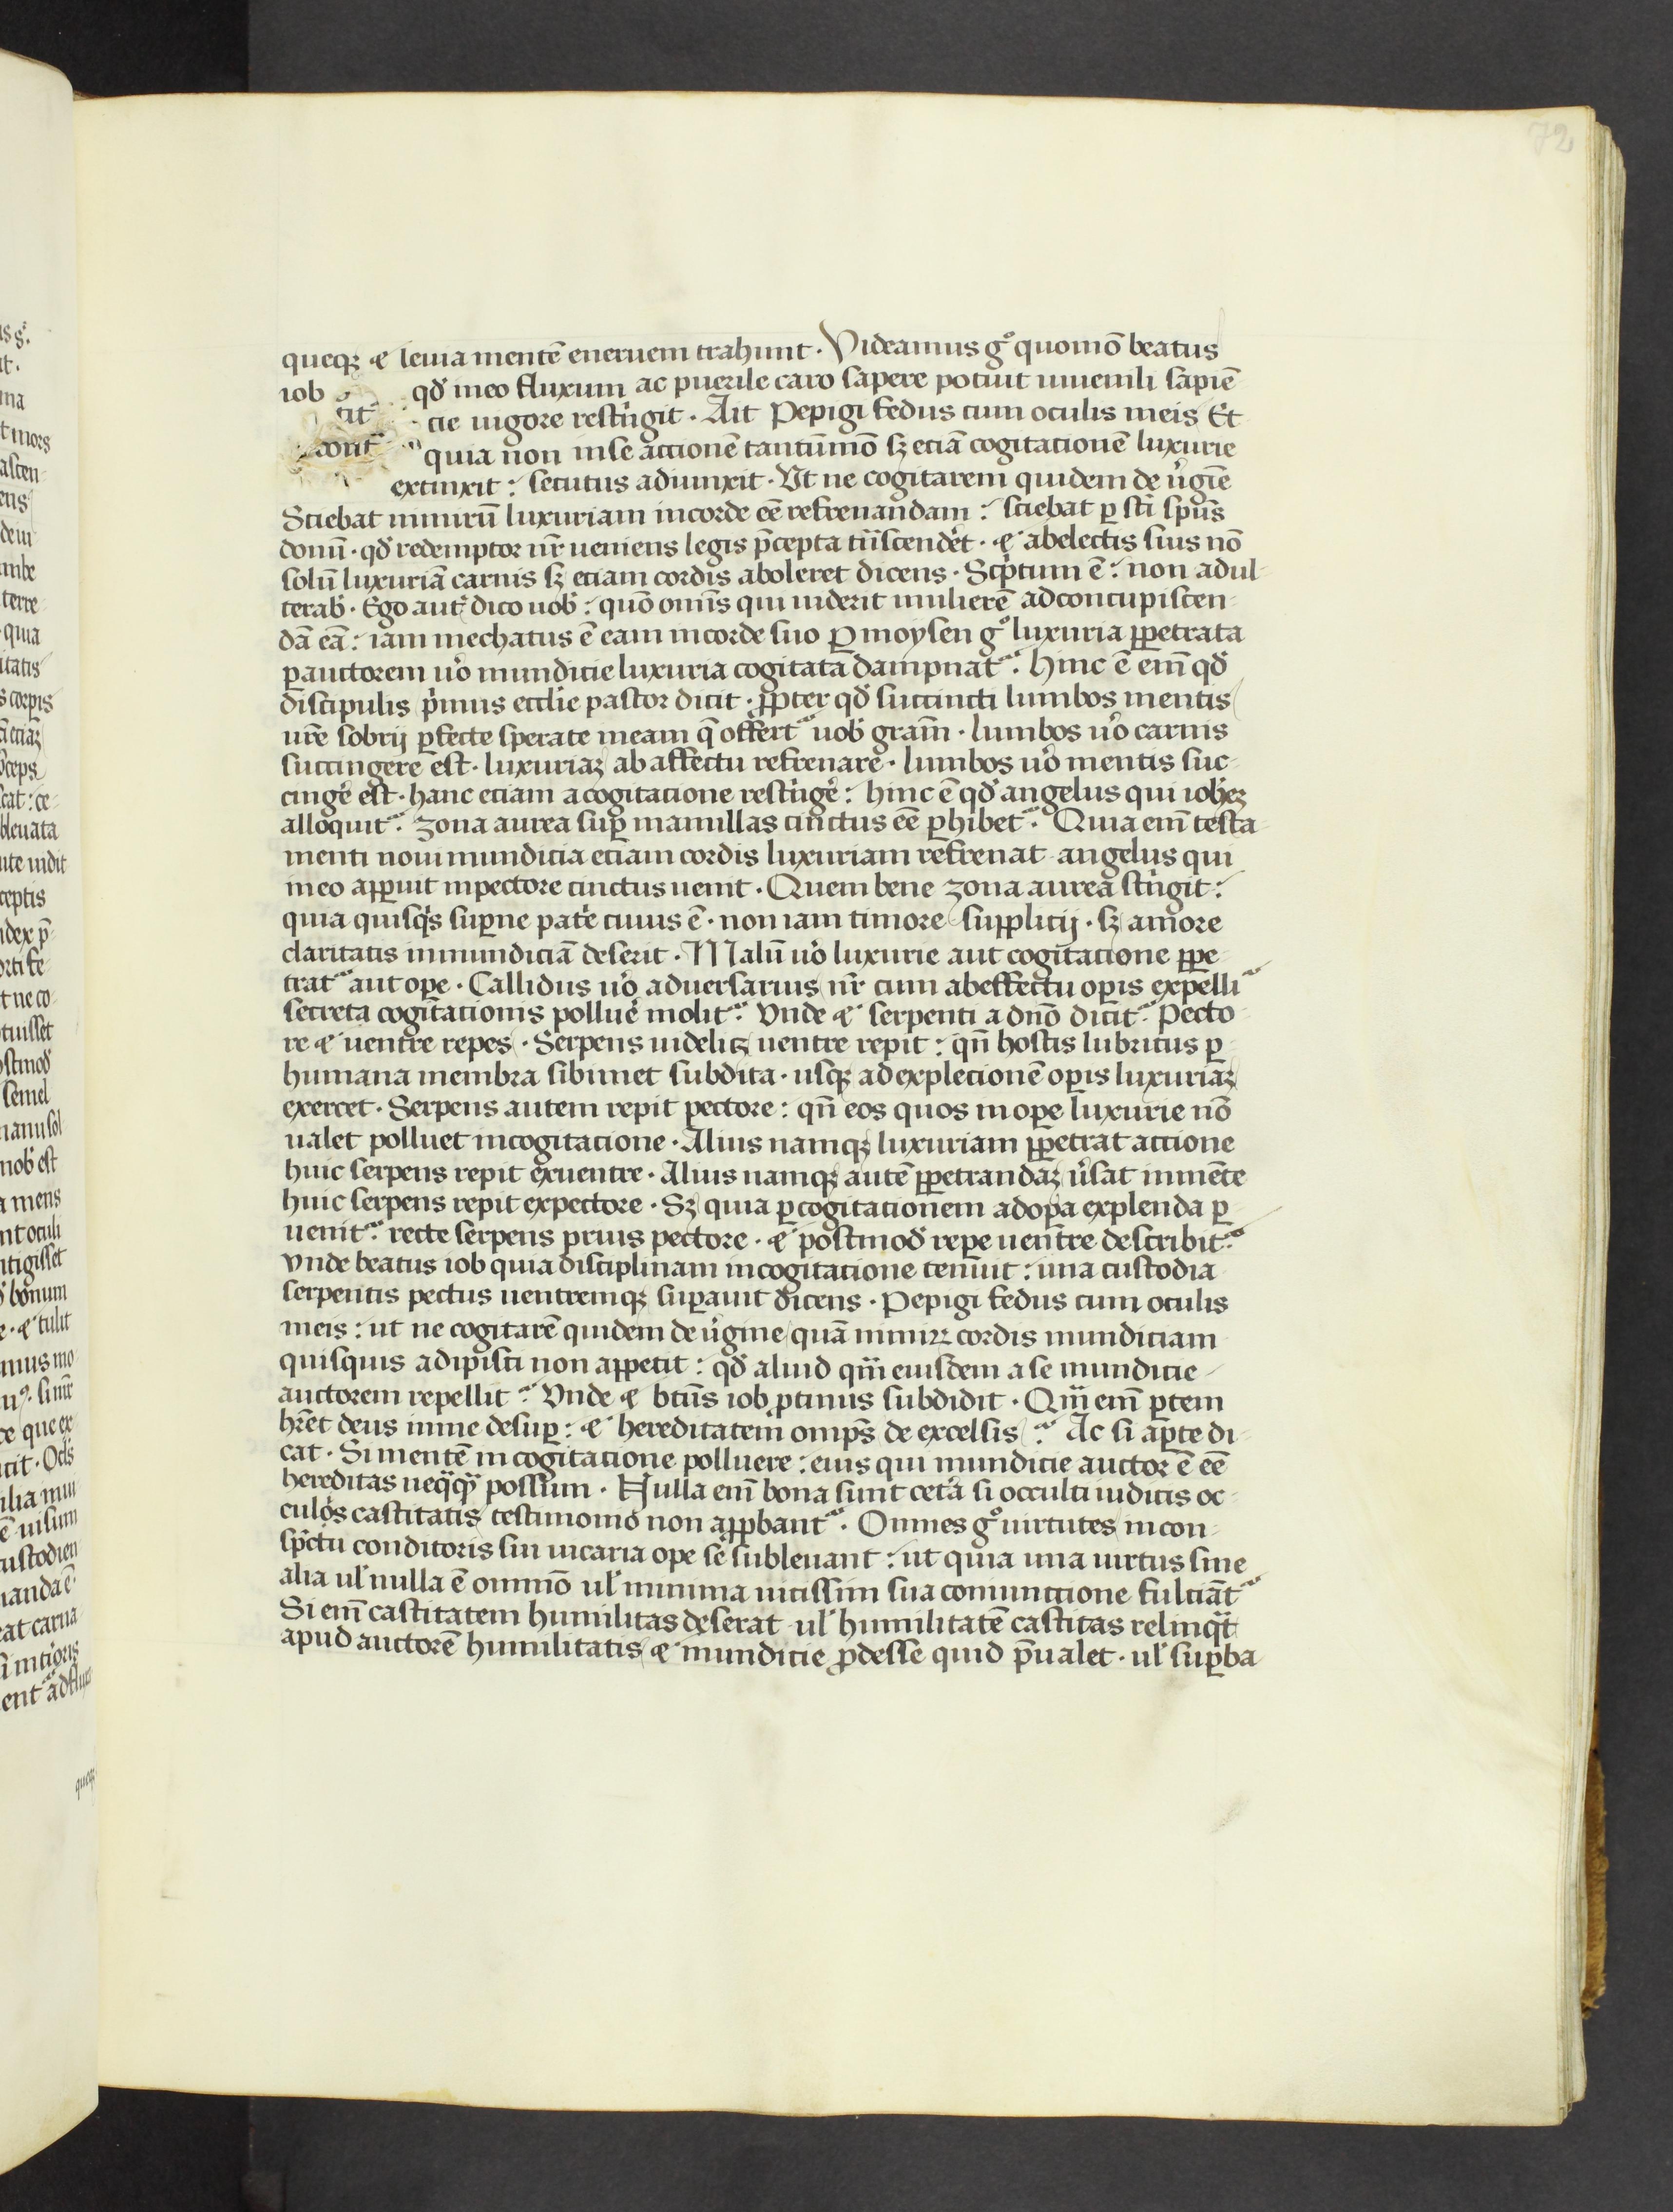 72
queqꝫ ⁊ leuia mentē eneruem trahunt · Videamus gͦ quomō beatus
iob qđ in eo fluxum ac puerile caro sapere potuit iuuenili sapiē
cie uigore restͥngit · Ait Pepigi fedus cum oculis meis Et
quia non in se accionē tantūmō sꝫ eciā cogitacionē luxurie
extinxit : secutus adiunxit · Vt ne cogitarem quidem de uͥgīe
Sciebat nimirū luxuriam in corde eē refrenandam : sciebat ꝑ sc̄i spūs
donū · qđ redemptor nr̄ ueniens legis p̄cepta tͣnscendēt · ⁊ ab electis suis nō
solū luxuriā carnis sꝫ eciam cordis aboleret dicens · Scͥptum ē : non adul
terab̛ · Ego aut̄ dico uob̛ : quō om̄is qui uiderit mulierē ad concupiscen
dā eā : iam mechatus ē eam in corde suo ꝑ moysen gͦ luxuria ꝑpetrata
ꝑ auctorem uͦo mundicie luxuria cogitata dampnatʳ : hinc ē em̄ qđ
discipulis pͥmus eccl̄ie pastor dicit · ꝓpter qđ succincti lumbos mentis
ur̄e sobrij ꝑfecte sperate in eam q̄ offertʳ uob̛ grām · lumbos uͦo carnis
succingere est · luxuriaꝫ ab affectu refrenare · lumbos uͦo mentis suc
cingē est · hanc eciam a cogitacione restͥngē : hinc ē qđ angelus qui ioħeꝫ
alloquitʳ : zona aurea suꝑ mamillas cinctus eē ꝑhibetʳ · Quia em̄ testa
menti noui mundicia eciam cordis luxuriam refrenat angelus qui
in eo apꝑuit in pectore cinctus uenit · Quem bene zona aurea stͥngit :
quia quisqͥs suꝑne patͥe ciuus ē · non iam timore supplicij · sꝫ amore
claritatis inmundiciā deserit · Malū uͦo luxurie aut cogitacione ꝑpe
tratʳ aut oꝑe · Callidus uͦo aduersarius nr̄ cum ab effectu oꝑis expelliʳ
secreta cogitacionis polluē molitʳ : Vnde ⁊ serpenti a dn̄o dicitʳ Pecto
re ⁊ uentre repes · Serpens uidelicꝫ uentre repit : qn̄ hostis lubricus ꝑ
humana membra sibimet subdita · usqꝫ ad explecionē oꝑis luxuriaꝫ
exercet · Serpens autem repit pectore : qn̄ eos quos in oꝑe luxurie nō
ualet polluet in cogitacione · Alius namqꝫ luxuriam ꝑpetrat accione
huic serpens repit ex uentre · Alius namqꝫ autē ꝑpetrandaꝫ uͤsat in mēte
huic serpens repit ex pectore · Sꝫ quia ꝑ cogitacionem ad oꝑa explenda ꝑ
uenitʳ : recte serpens prius pectore · ⁊ postmođ reꝑe uentre describitʳ
Vnde beatus iob quia disciplinam in cogitacione tenuit : una custodia
serpentis pectus uentremqꝫ suꝑauit dicens · Pepigi fedus cum oculis
meis : ut ne cogitarē quidem de uͥgine quā nimiꝝ cordis mundiciam
quisquis adipisci non appetit : qđ aliud qͣm eiusdem a se mundicie
auctorem repellit ʳ Vnde ⁊ bt̄us iob ꝓtinus subdidit · Qͣm em̄ ꝑtem
hr̄et deus in me desuꝑ : ⁊ hereditatem omp̄s de excelsis ʳ Ac si aꝑte di
cat · Si mentē in cogitacione polluere : eius qui mundicie auctor ē eē
hereditas neqͣqͣ possum · Nulla em̄ bona sunt cetͣa si occulti iudicis oc
culos castitatis testimonio non apꝓbantʳ · Omnes gͦ uirtutes in con
spc̄tu conditoris sui uicaria oꝑe se subleuant : ut quia una uirtus sine
alia ul̛ nulla ē omnīo ul̛ minima uicissim sua coniunctione fulciātʳ
Si em̄ castitatem humilitas deserat ul̛ humilitatē castitas relinqͣt
apud auctorē humilitatis ⁊ mundicie ꝓdesse quid p̄ualet · ul̛ suꝑba